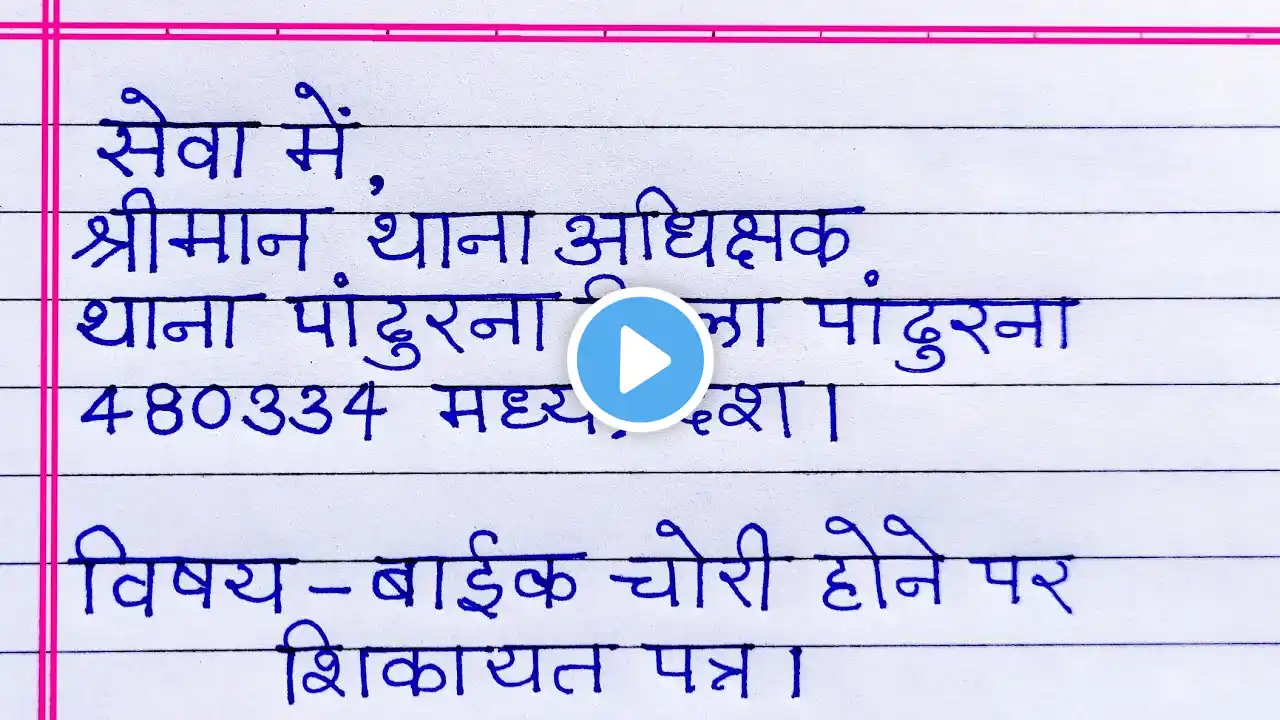 सेवा में,
श्रीमान थाना अधिक्षक
थाना पांढुरना पांढुरना
480334
विषय - बाईक चोरी होने पर
शिकायत पत्र।